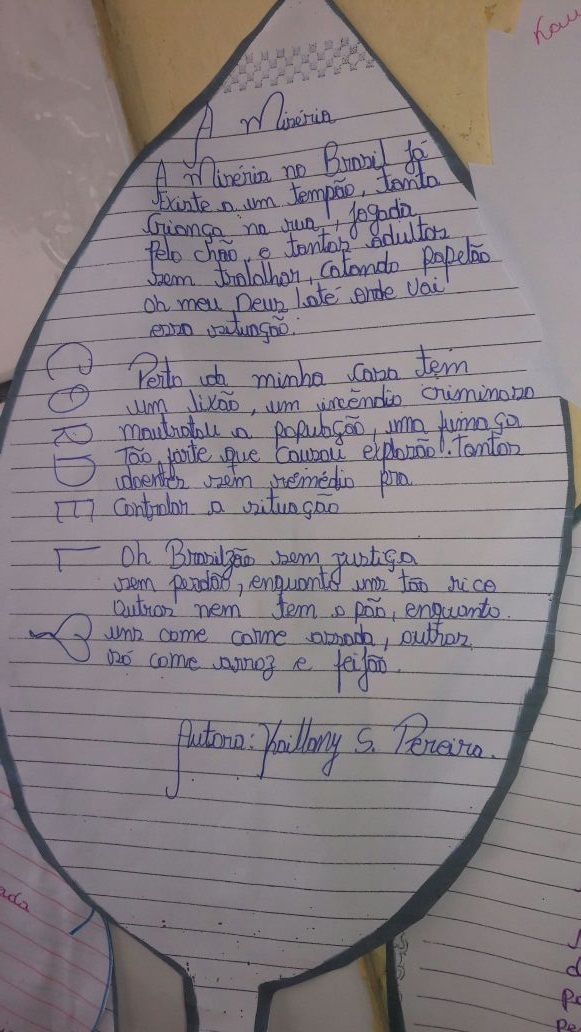 A Miséria
A Miséria no Brasil já
Existe a um tempão, tanta
Criança na rua, jogada
Pelo chão, e tantos adultos
sem trabalhar, catando papelão
oh meu Deus! até onde vai
essa situação.
Perto da minha casa tem
um lixão, um incêndio criminoso
mautratou a população, uma fumaça
Tão forte que causou explosão. Tantos
doentes sem remédio pra
controlar a situação
Oh Brasilzão sem justiça
sem perdão, enquanto uns tão rico
outros nem tem o pão, enquanto
uns come carne assada, outros
só come arroz e feijão.
Autora: Kaillany S. Pereira.